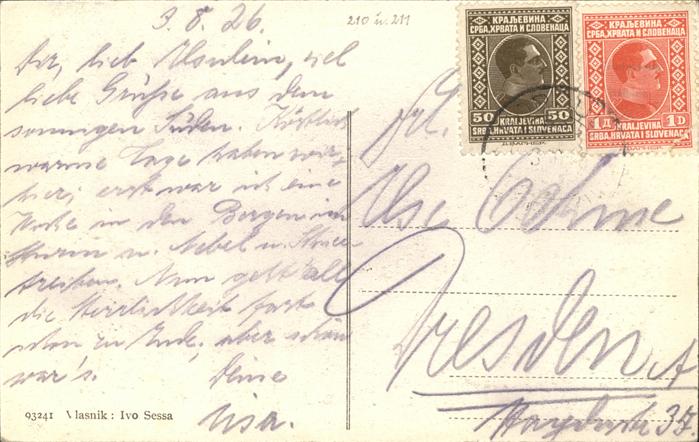 3.8.26.
210 u. 211
Dir, lieb Ilsulein, viel
liebe Grüße aus dem
sonnigen Süden. Köstlich
warme Tage haben wir
hier; erst war ich eine
Woche in den Bergen in
Sturm u. Nebel u. Schnee
treiben. Nun geht all
die Herrlichkeit fast
schon zu Ende, aber schön
war's. Deine
Lisa.
93241 Vlasnik : Ivo Sessa
КРАЉЕВИНА
СРБА, ХРВАТА И СЛОВЕНАЦА
50 50
KRALJEVINA
SRBA, HRVATA I SLOVENACA
КРАЉЕВИНА
СРБА, ХРВАТА И СЛОВЕНАЦА
1 Д 1 D
KRALJEVINA
SRBA, HRVATA I SLOVENACA
Frl.
Ilse Böhme
Dresden A